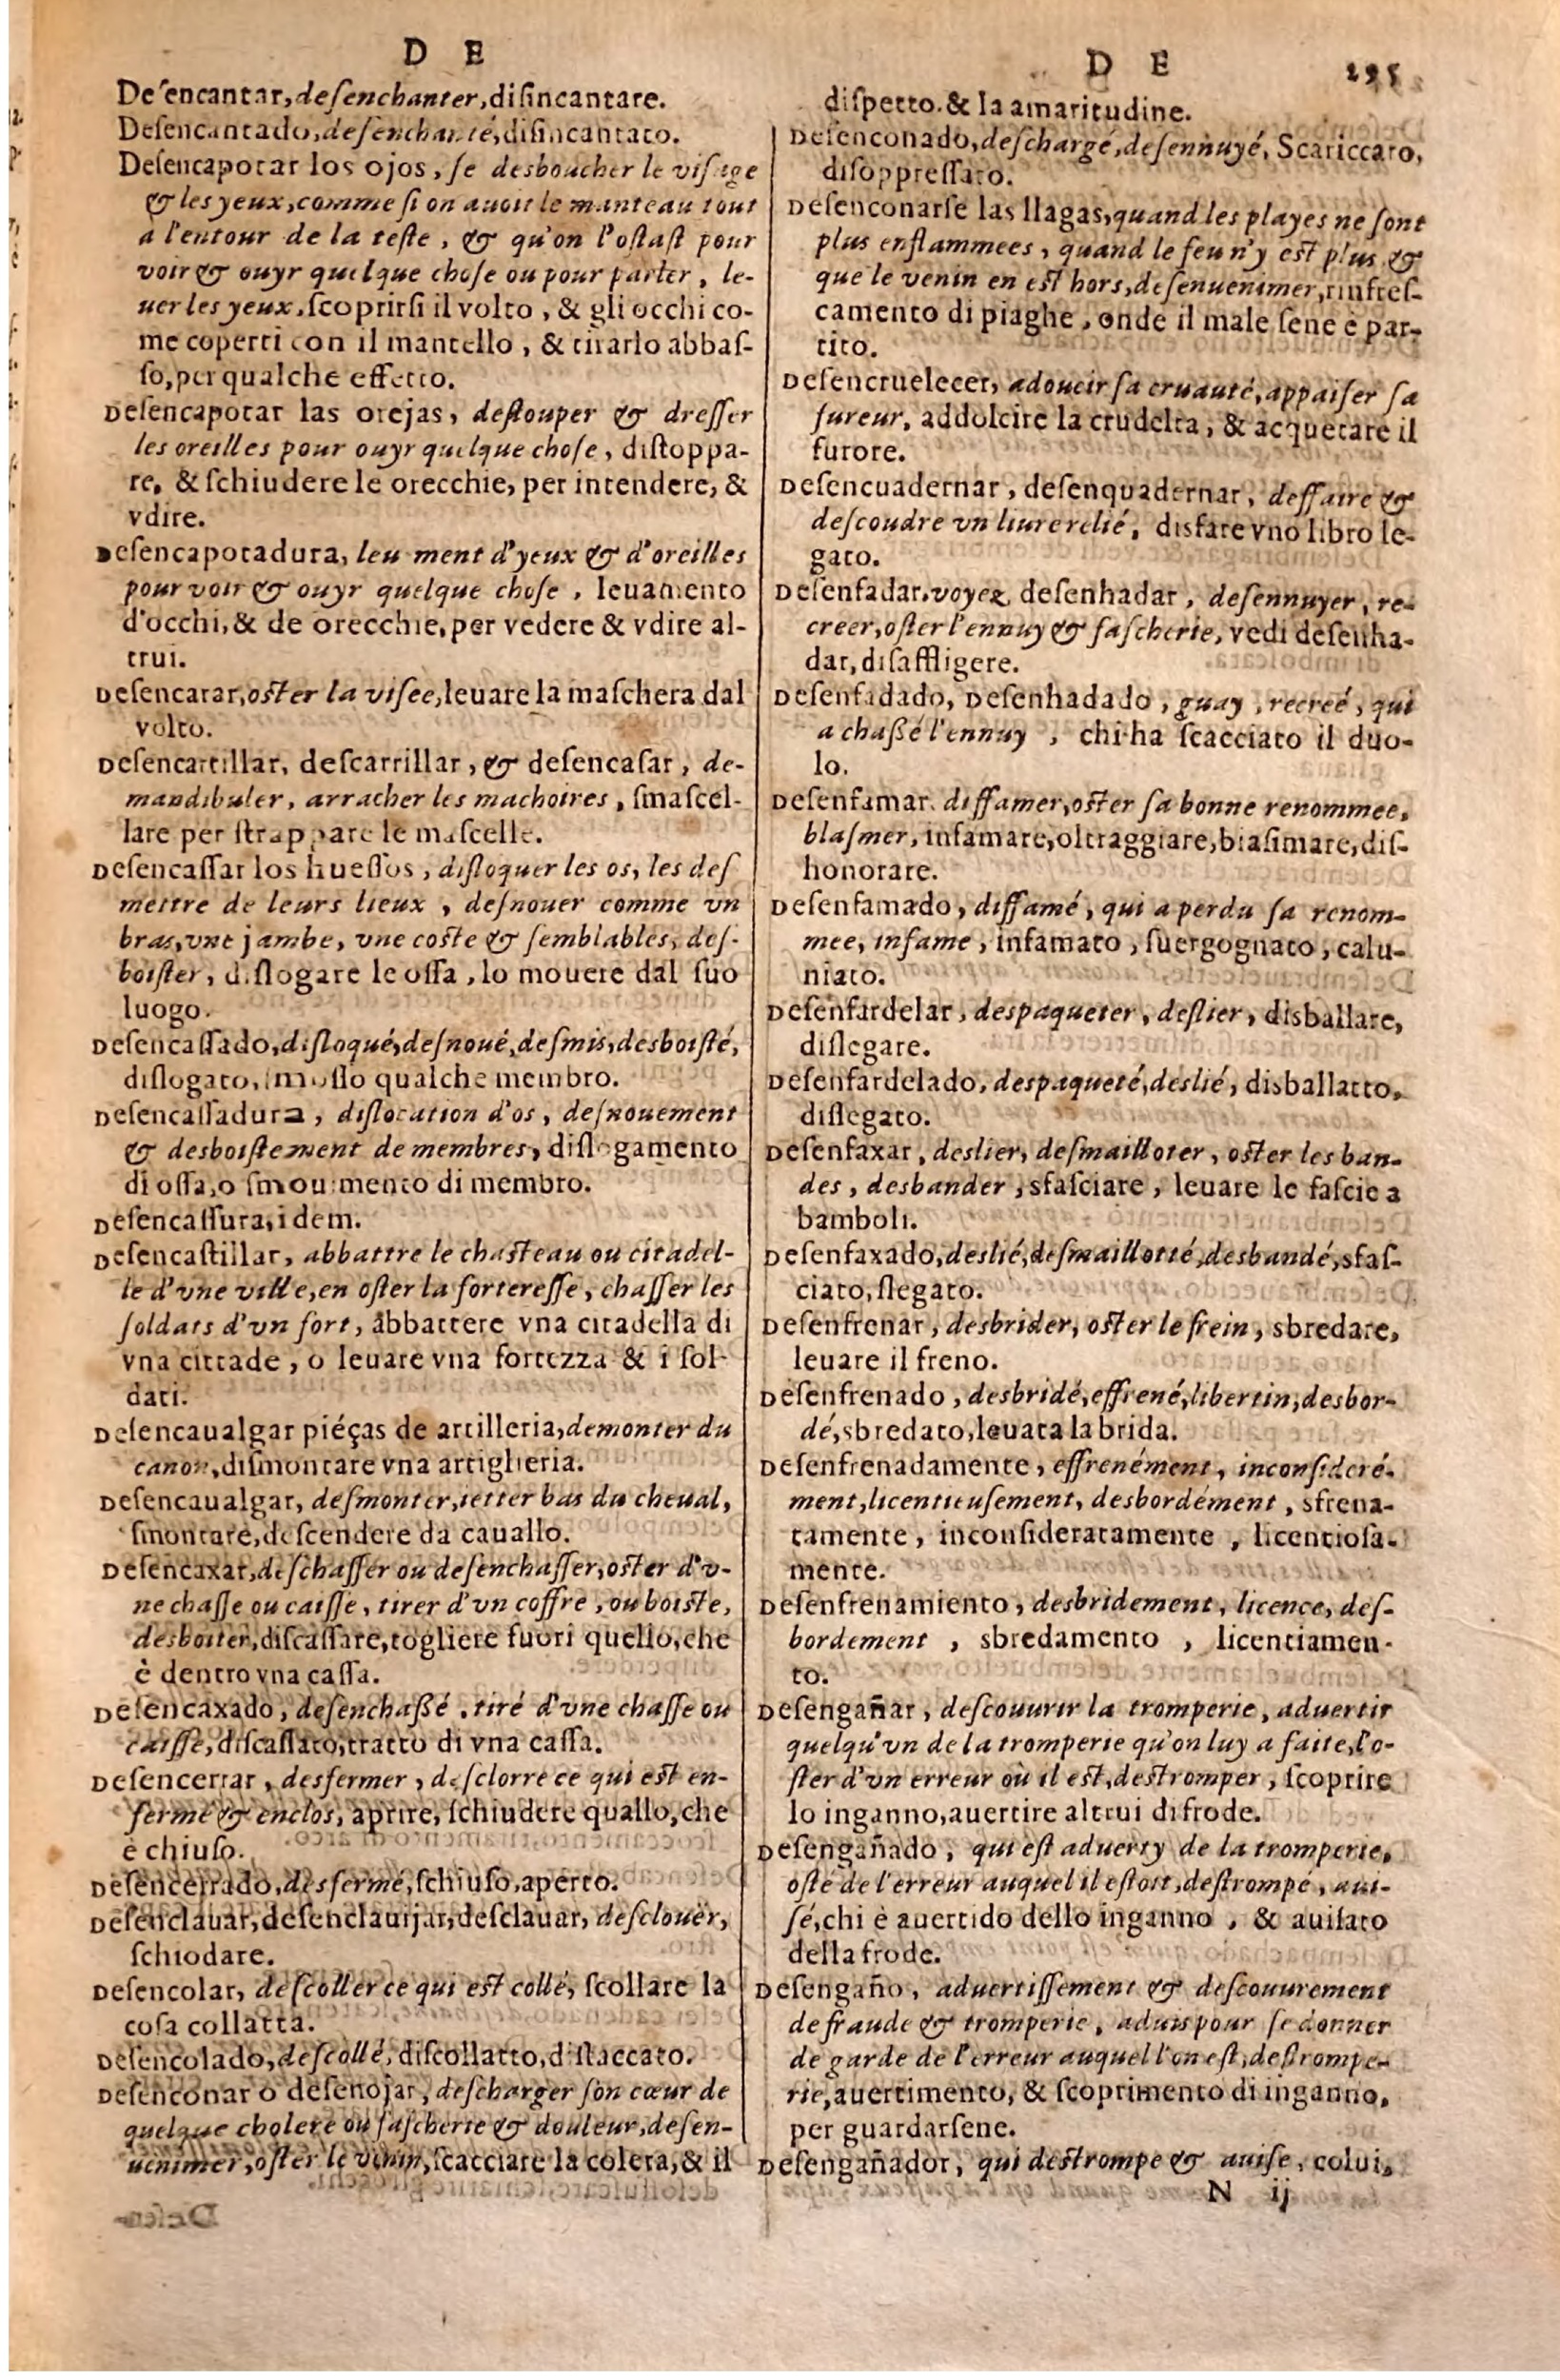 D E
Deſencantar, deſenchanter, diſincantare.
Deſencantado, deſenchanté, diſincantato.
Deſencapotar los ojos, ſe desboucher le viſage
& les yeux, comme ſi on auoit le manteau tout
a l'entour de la teſte, & qu'on l'oſtaſt pour
voir & ouyr quelque choſe ou pour parler, le-
uer les yeux, ſcoprirſi il volto, & gli occhi co-
me coperti con il mantello, & tirarlo abbaſ-
ſo, per qualche effetto.
Deſencapotar las orejas, deſtouper & dreſſer
les oreilles pour ouyr quelque choſe, diſtoppa-
re, & ſchiudere le orecchie, per intendere, &
vdire.
Deſencapotadura, leuement d'yeux & d'oreilles
pour voir & ouyr quelque choſe, leuamento
d'occhi, & de orecchie, per vedere & vdire al-
trui.
Deſencarar, oſter la viſee, leuare la maſchera dal
volto.
Deſencarrillar, deſcarrillar, & deſencaſar, de-
mandibuler, arracher les machoires, ſmaſcel-
lare per ſtrappare le maſcelle.
Deſencaſſar los hueſſos, diſloquer les os, les deſ
mettre de leurs lieux, deſnouer comme vn
bras, vne jambe, vne coſte & ſemblables, deſ-
boiſter, diſlogare le oſſa, lo mouere dal ſuo
luogo.
Deſencaſſado, diſloqué, deſnoué, deſmis, desboiſté,
diſlogato, ſmoſſo qualche membro.
Deſencaſſadura, diſlocation d'os, deſnouement
& desboiſtement de membres, diſlogamento
di oſſa, o ſmouimento di membro.
Deſencaſſura, idem.
Deſencaſtillar, abbattre le chaſteau ou citadel-
le d'vne ville, en oſter la fortereſſe, chaſſer les
ſoldats d'vn fort, abbattere vna citadella di
vna cittade, o leuare vna fortezza & i ſol-
dati.
Deſencaualgar piéças de artilleria, demonter du
canon, diſmontare vna artiglieria.
Deſencaualgar, deſmonter, ietter bas du cheual,
ſmontare, deſcendere da cauallo.
Deſencaxar, deſchaſſer ou deſenchaſſer, oſter d'v-
ne chaſſe ou caiſſe, tirer d'vn coffre, ou boiſte,
desboiter, diſcaſſare, togliere fuori quello, che
è dentro vna caſſa.
Deſencaxado, deſenchaßé, tiré d'vne chaſſe ou
caiſſe, diſcaſſato, tratto di vna caſſa.
Deſencerrar, desfermer, deſclorre ce qui est en-
fermé & enclos, aprire, ſchiudere quallo, che
è chiuſo.
Deſencerrado, desfermé, ſchiuſo, aperto.
Deſenclauar, deſenclauijar, deſclauar, deſclouër,
ſchiodare.
Deſencolar, deſcoller ce qui est collé, ſcollare la
coſa collatta.
Deſencolado, deſcollé, diſcollatto, diſtaccato.
Deſenconar o deſenojar, deſcharger ſon cœur de
quelque cholere ou faſcherie & douleur, deſen-
uenimer, oſter le venin, ſcacciare la colera, & il
D E 295
diſpetto. & la amaritudine.
Deſenconado, deſchargé, deſennuyé, Scariccato,
diſoppreſſato.
Deſenconarſe las llagas, quand les playes ne ſont
plus enflammees, quand le feu n'y est plus &
que le venin en est hors, deſenuenimer, rinfreſ-
camento di piaghe, onde il male ſene è par-
tito.
Deſencruelecer, adoucir ſa cruauté, appaiſer ſa
fureur, addolcire la crudelta, & acquetare il
furore.
Deſencuadernar, deſenquadernar, deffaire &
deſcoudre vn liure relié, disfare vno libro le-
gato.
Deſenfadar, voyez deſenhadar, deſennuyer, re-
creer, oſter l'ennuy & faſcherie, vedi deſenha-
dar, diſaffligere.
Deſenfadado, Deſenhadado, guay, recreé, qui
a chaßé l'ennuy, chi ha ſcacciato il duo-
lo.
Deſenfamar, diffamer, oſter ſa bonne renommee,
blaſmer, infamare, oltraggiare, biaſimare, diſ-
honorare.
Deſenfamado, diffamé, qui a perdu ſa renom-
mee, infame, infamato, ſuergognato, calu-
niato.
Deſenfardelar, despaqueter, deſlier, disballare,
diſlegare.
Deſenfardelado, despaqueté, deslié, disballatto,
diſlegato.
Deſenfaxar, deslier, deſmailloter, oſter les ban-
des, desbander, sfaſciare, leuare le faſcie a
bamboli.
Deſenfaxado, deslié, deſmaillotté, desbandé, sfaſ-
ciato, ſlegato.
Deſenfrenar, desbrider, oſter le frein, sbredare,
leuare il freno.
Deſenfrenado, desbridé, effrené, libertin, desbor-
dé, sbredato, leuata la brida.
Deſenfrenadamente, effrenément, inconſideré-
ment, licentieuſement, desbordément, sfrena-
tamente, inconſideratamente, licentioſa-
mente.
Deſenfrenamiento, desbridement, licence, deſ-
bordement, sbredamento, licentiamen-
to.
Deſengañar, deſcouurir la tromperie, aduertir
quelqu'vn de la tromperie qu'on luy a faite, l'o-
ſter d'vn erreur où il est, destromper, ſcoprire
lo inganno, auertire altrui di frode.
Deſengañado, qui eſt aduerty de la tromperie,
oſté de l'erreur auquel il eſtoit, deſtrompé, aui-
ſé, chi è auertido dello inganno, & auiſato
della frode.
Deſengaño, aduertiſſement & deſcouurement
de fraude & tromperie, aduis pour ſe donner
de garde de l'erreur auquel l'on eſt, deſtrompe-
rie, auertimento, & ſcoprimento di inganno,
per guardarſene.
Deſengañador, qui destrompe & auiſe, colui,
N ij